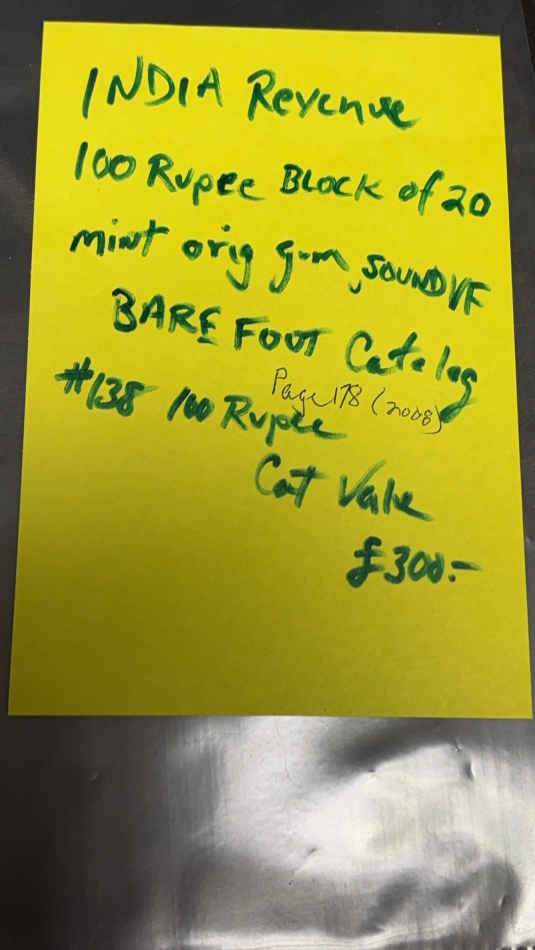 INDIA Revenue
100 Rupee Block of 20
mint orig gum, SOUND VF
BAREFOOT Catalog
Page 178 (2008)
#138 100 Rupee
Cat Value
£300.-